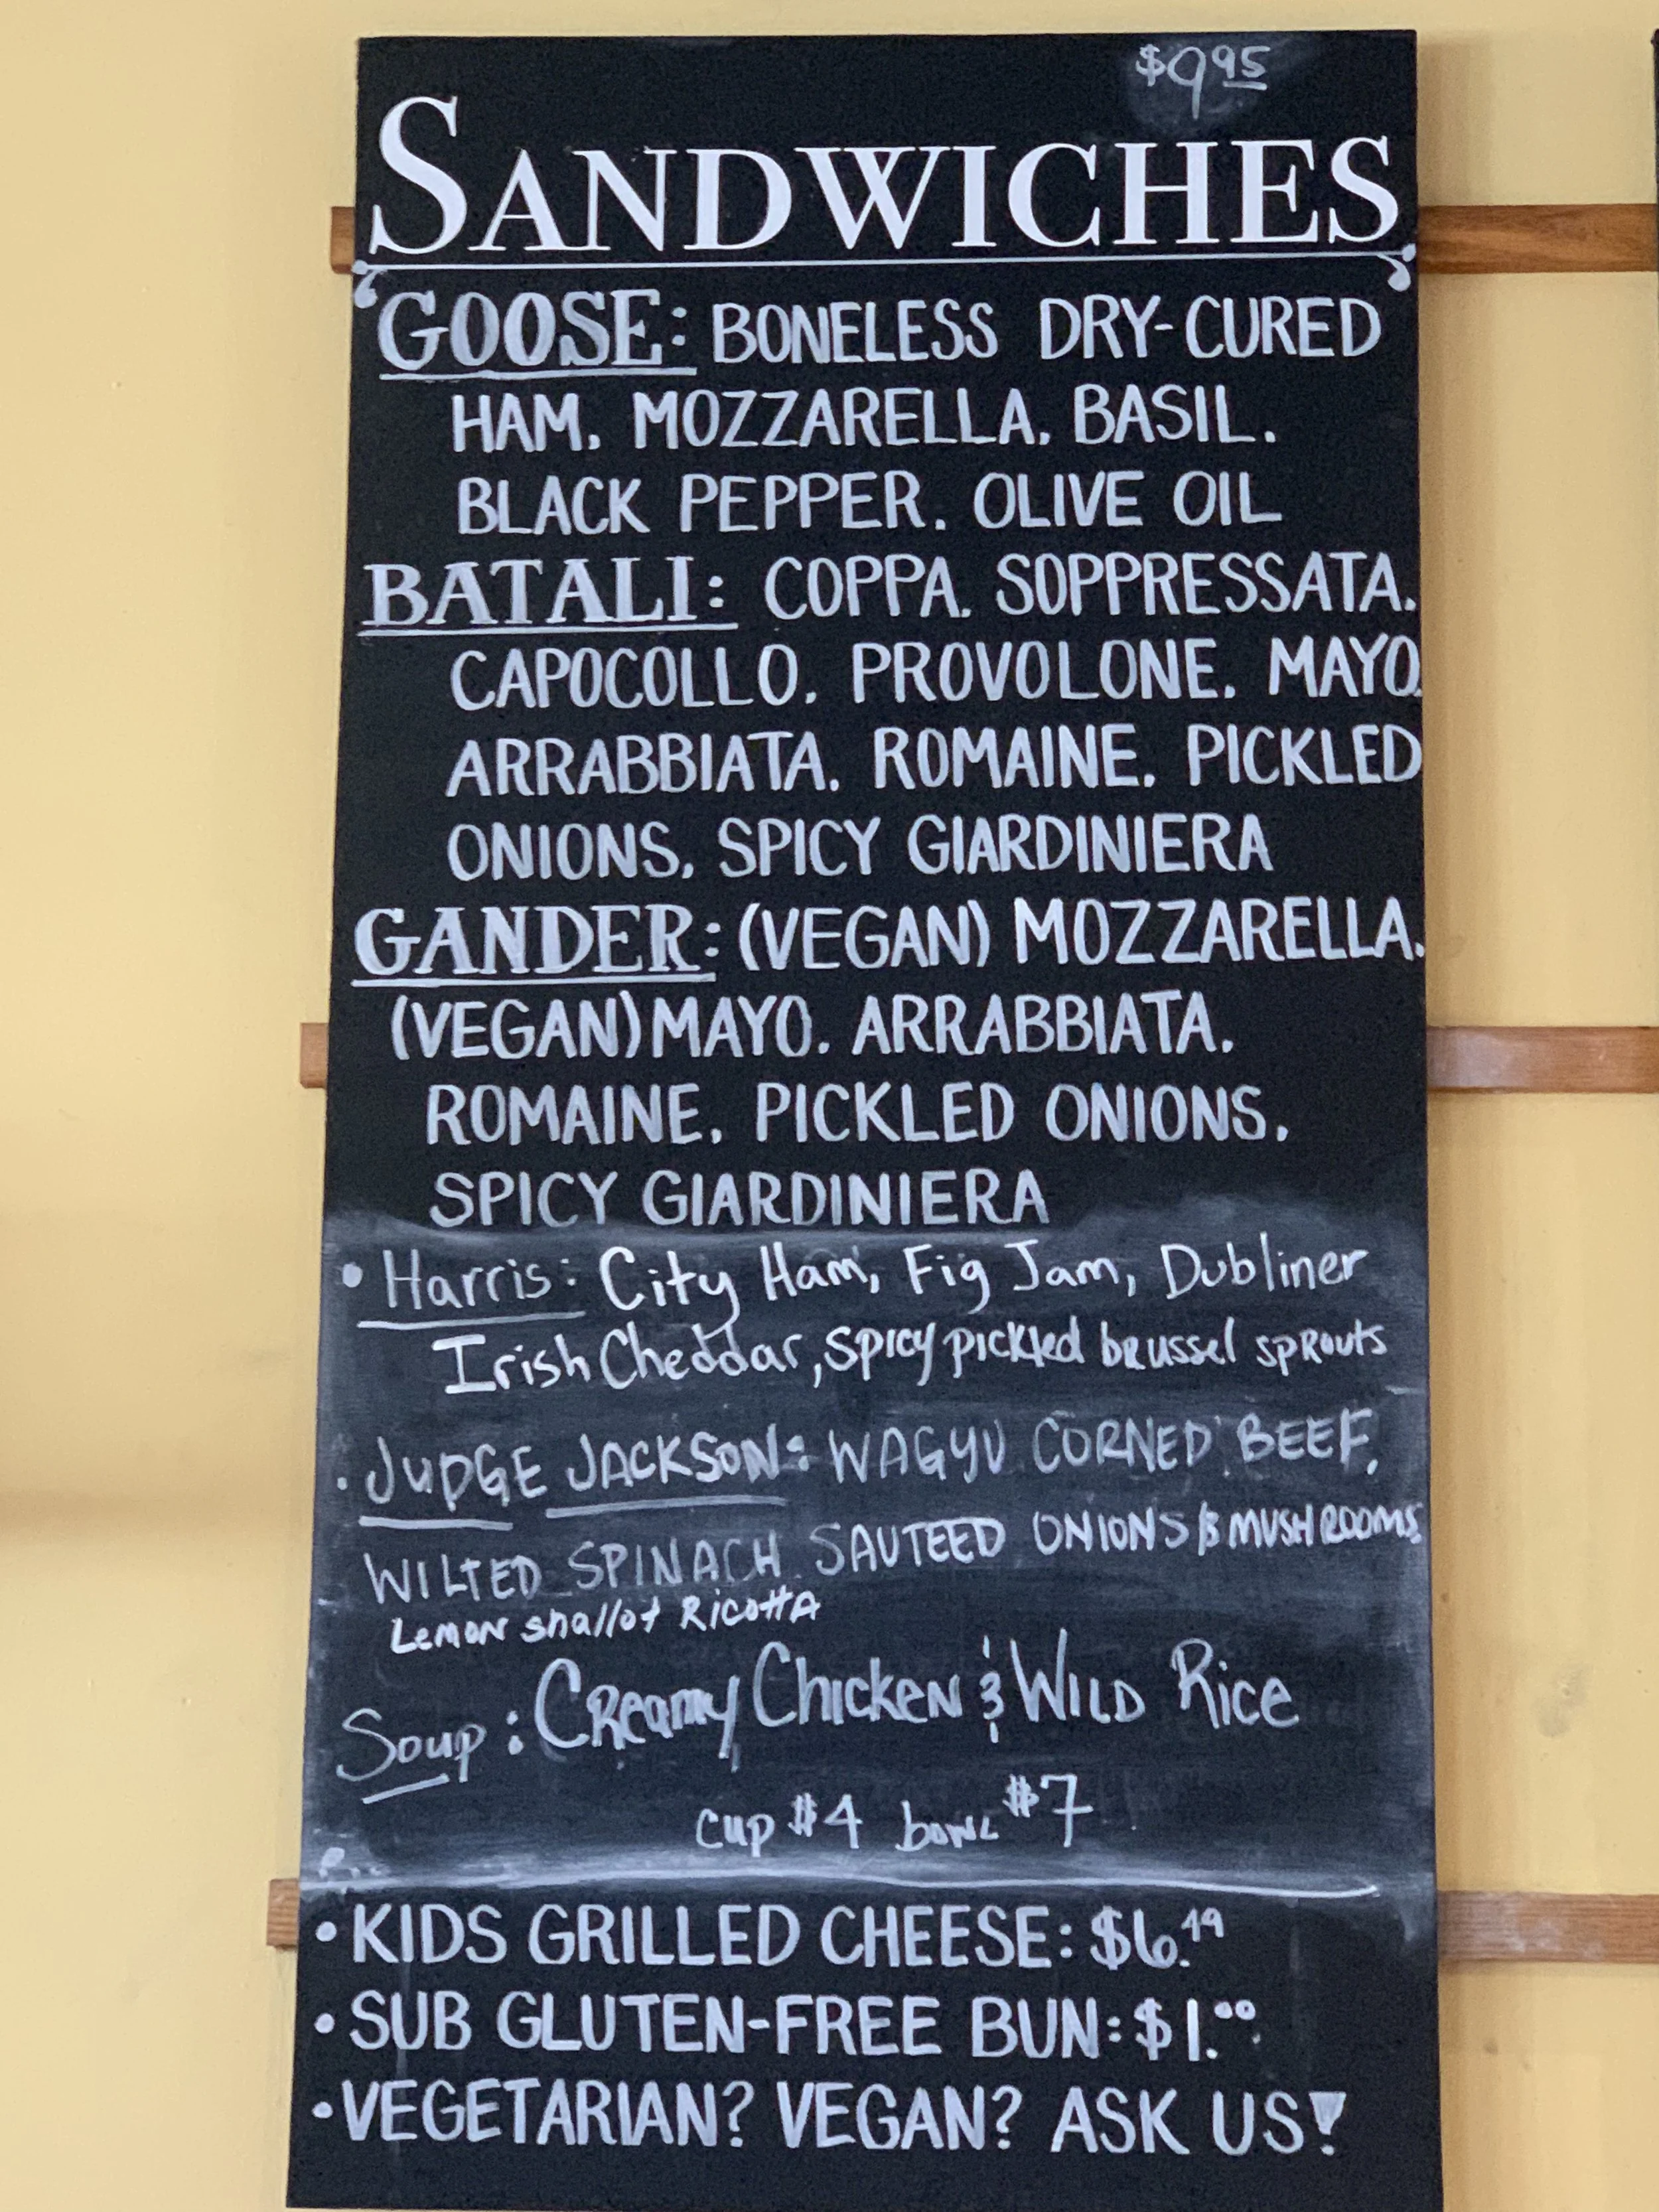 $9.95
SANDWICHES
GOOSE: BONELESS DRY-CURED
HAM. MOZZARELLA. BASIL.
BLACK PEPPER. OLIVE OIL
BATALI: COPPA. SOPPRESSATA.
CAPOCOLLO. PROVOLONE. MAYO.
ARRABBIATA. ROMAINE. PICKLED
ONIONS. SPICY GIARDINIERA
GANDER: (VEGAN) MOZZARELLA.
(VEGAN) MAYO. ARRABBIATA.
ROMAINE. PICKLED ONIONS.
SPICY GIARDINIERA
• Harris: City Ham, Fig Jam, Dubliner
Irish Cheddar, spicy pickled brussel sprouts
• JUDGE JACKSON: WAGYU CORNED BEEF,
WILTED SPINACH SAUTEED ONIONS & MUSHROOMS
Lemon shallot Ricotta
Soup: Creamy Chicken & Wild Rice
cup $4 bowl $7
• KIDS GRILLED CHEESE: $6.49
• SUB GLUTEN-FREE BUN: $1.00
• VEGETARIAN? VEGAN? ASK US!